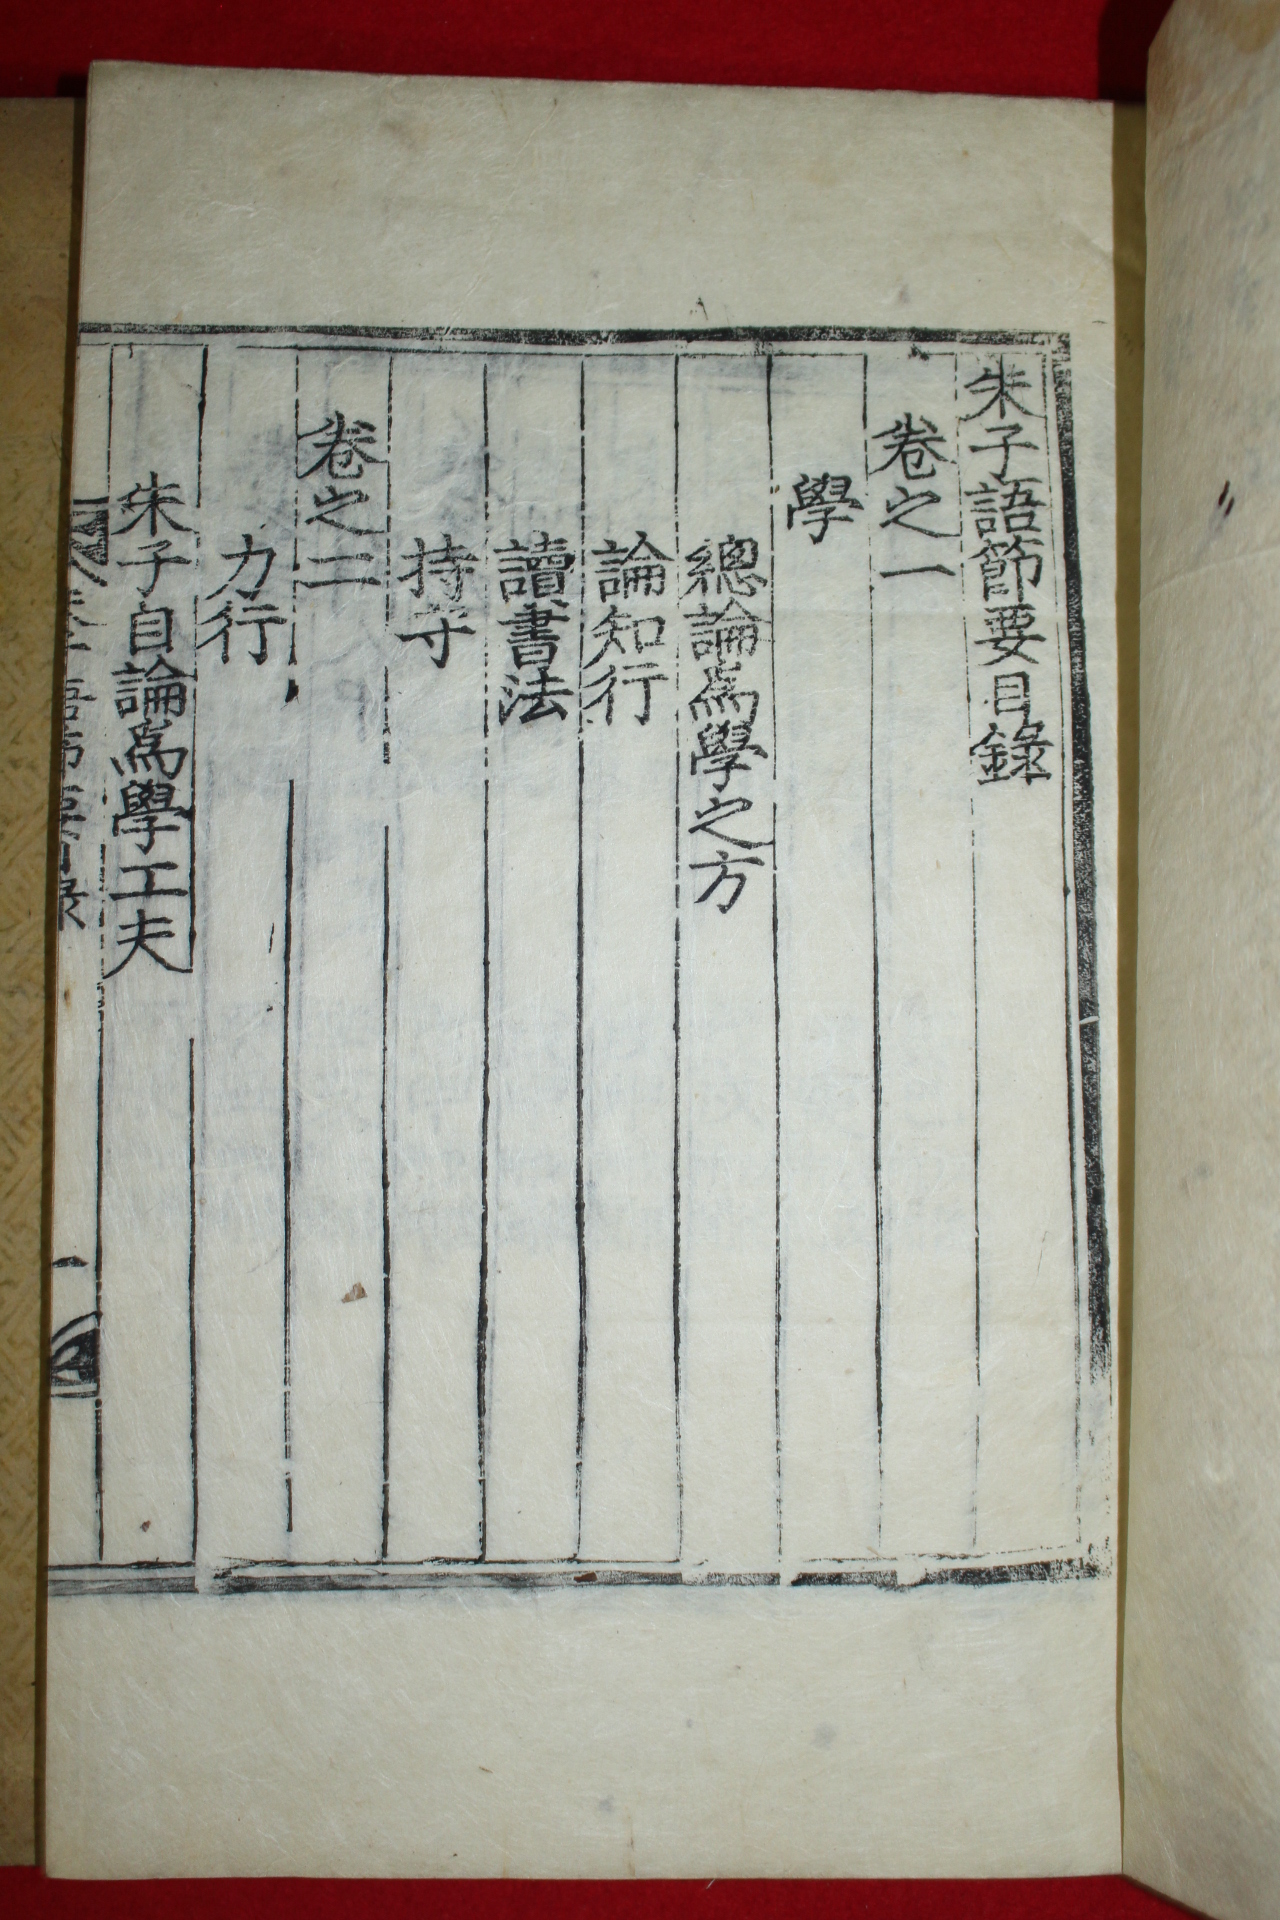 朱子語節要目錄
卷之一
學
總論爲學之方
論知行
讀書法
持守
卷之二
力行
朱子自論爲學工夫
朱子語節要目錄
一